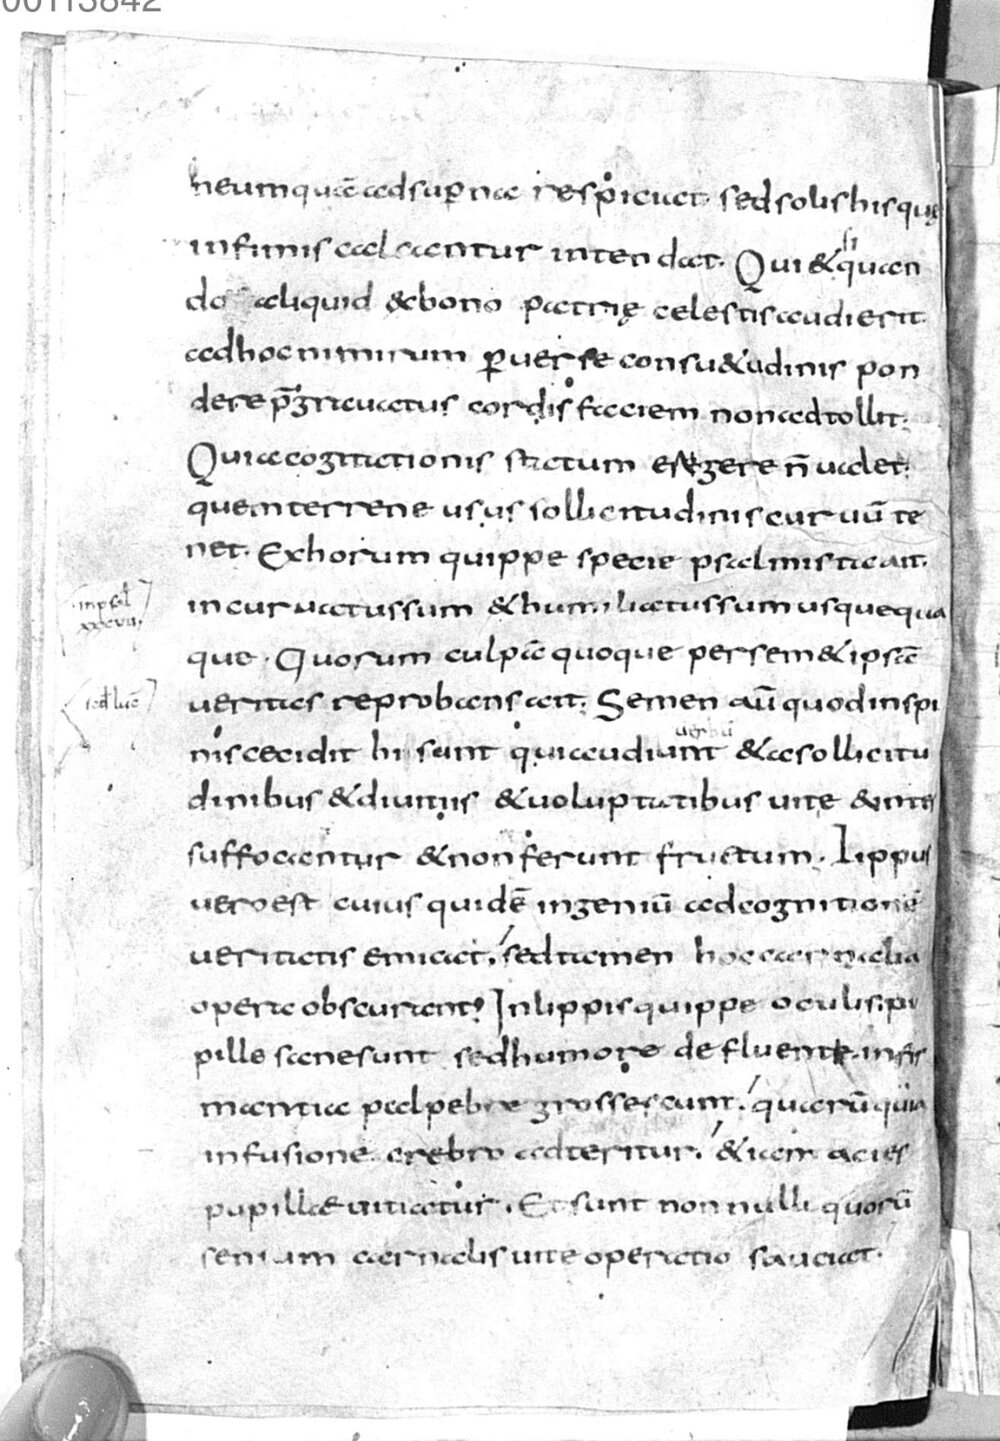 00113842
neumquā adsuperna respiciat sed solis his quę
infimis calcantur intendat. Qui & quan
do aliquid & bono patrię celestis audierit
ad hoc nimirum ꝑuerse consu&udinis pon
dere p̄grauatus cordis faciem non adtollit.
Qui a cogitationis statum erigere n̄ ualet.
quem terrene usus sollicitudinis curuū te
net. Ex horum quippe specie psalmista ait.
in psal
xxxvii
incuruatus sum & humiliatus sum usquequa
que. Quorum culpā quoque per sem&ipsā
scd luc̄
ueritas reprobans ait. Semen aū quod in spi
nis cecidit hi sunt qui audiunt uerbū & a sollicitu
dinibus & diuitiis & uoluptatibus uitę &inte
suffocantur & non ferunt fructum. Lippus
uero est cuius quidē ingeniū ad cognitionē
ueritatis emicat, sed tamen hoc carnalia
opera obscurant. In lippis quippe oculis pu
pille sane sunt sed humore defluente infir
mantiae palpebre grossescunt. quarū quia
infusione crebro adteritur. &iam acies
pupillae uitiatur. Et sunt non nulli quorū
sensum carnalis uite operatio sauciat.